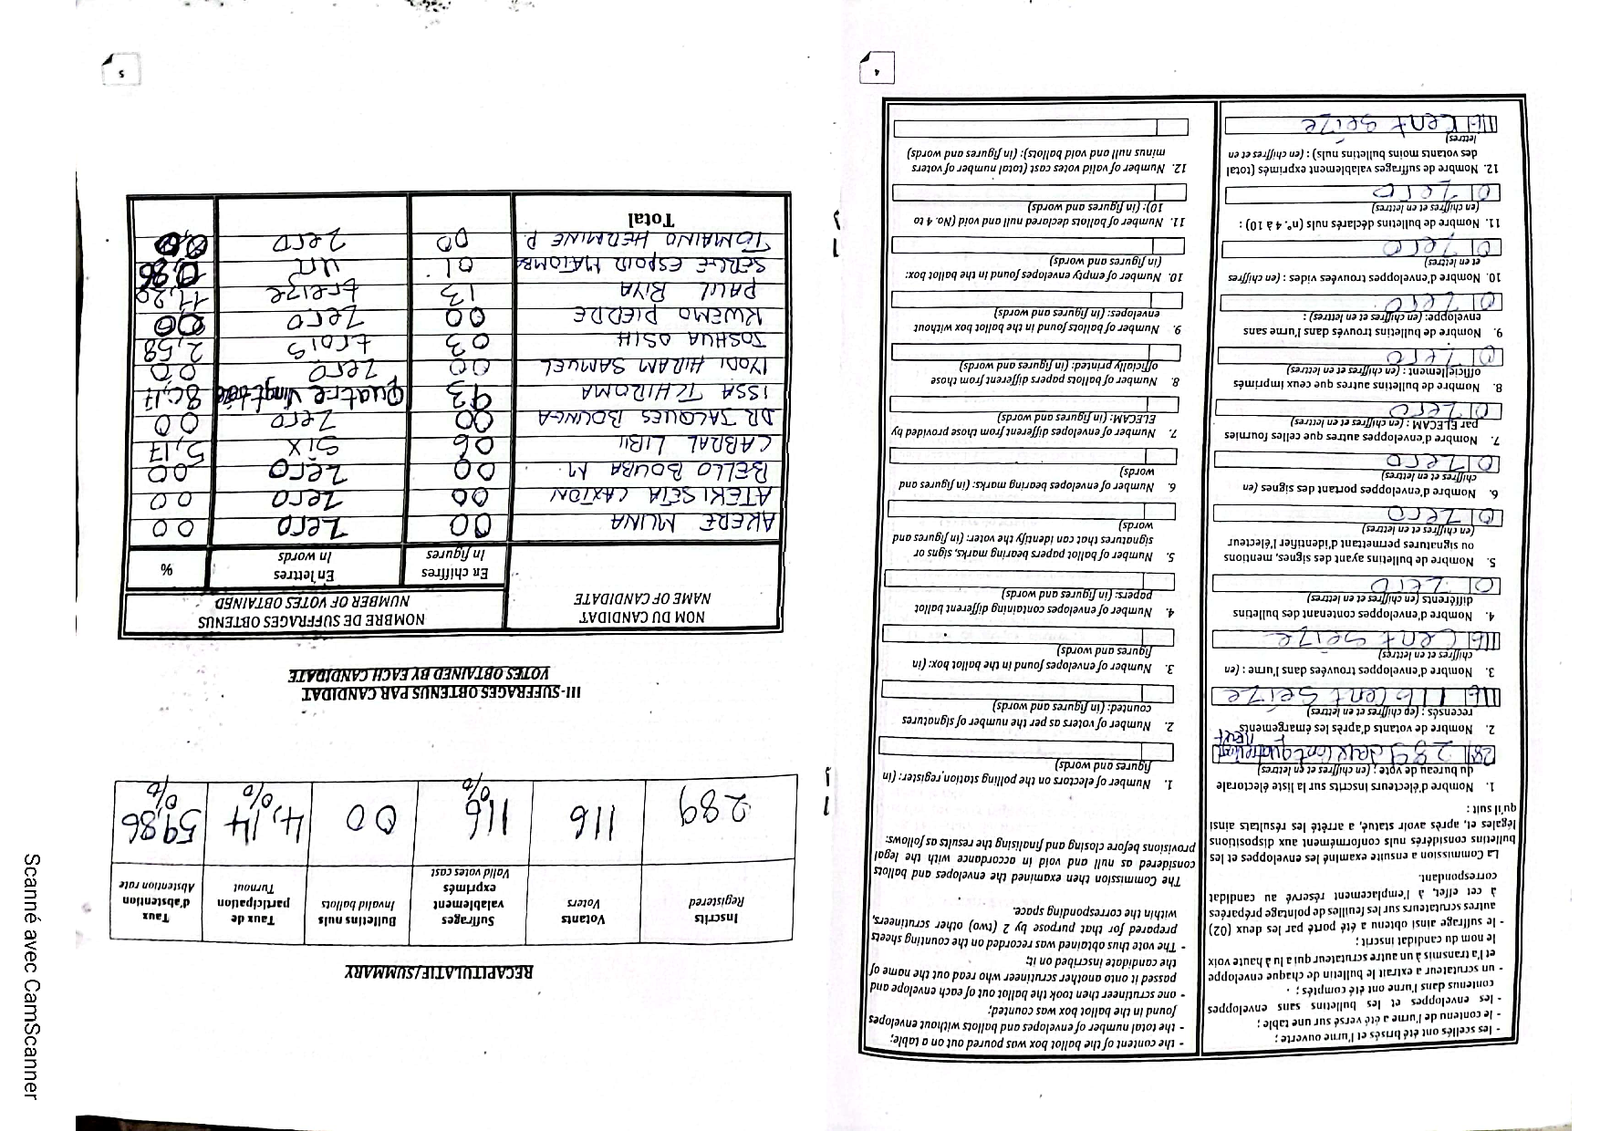 4
- les scellés ont été brisés et l'urne ouverte ;
- le contenu de l'urne a été versé sur une table ;
- les enveloppes et les bulletins sans enveloppes
contenus dans l'urne ont été comptés ;
- un scrutateur a extrait le bulletin de chaque enveloppe
et l'a transmis à un autre scrutateur qui a lu à haute voix
le nom du candidat inscrit ;
- le suffrage ainsi obtenu a été porté par les deux (02)
autres scrutateurs sur les feuilles de pointage préparées
à cet effet, à l'emplacement réservé au candidat
correspondant.
La Commission a ensuite examiné les enveloppes et les
bulletins considérés nuls conformément aux dispositions
légales et, après avoir statué, a arrêté les résultats ainsi
qu'il suit :
1. Nombre d'électeurs inscrits sur la liste électorale
du bureau de vote : (en chiffres et en lettres)
289
2. Nombre de votants d'après les émargements
recensés : (en chiffres et en lettres)
116 Cent Seize
3. Nombre d'enveloppes trouvées dans l'urne : (en
chiffres et en lettres)
116 Cent Seize
4. Nombre d'enveloppes contenant des bulletins
différents (en chiffres et en lettres)
0 Zero
5. Nombre de bulletins ayant des signes, mentions
ou signatures permettant d'identifier l'électeur
(en chiffres et en lettres)
0 Zero
6. Nombre d'enveloppes portant des signes (en
chiffres et en lettres)
0 Zero
7. Nombre d'enveloppes autres que celles fournies
par ELECAM : (en chiffres et en lettres)
0 Zero
8. Nombre de bulletins autres que ceux imprimés
officiellement : (en chiffres et en lettres)
0 Zero
9. Nombre de bulletins trouvés dans l'urne sans
enveloppe: (en chiffres et en lettres) :
0 Zero
10. Nombre d'enveloppes trouvées vides : (en chiffres
et en lettres)
0 Zero
11. Nombre de bulletins déclarés nuls (n°. 4 à 10) :
(en chiffres et en lettres)
0 Zero
12. Nombre de suffrages valablement exprimés (total
des votants moins bulletins nuls) : (en chiffres et en
lettres)
116 Cent Seize
- the content of the ballot box was poured out on a table;
- the total number of envelopes and ballots without envelopes
found in the ballot box was counted;
- one scrutineer then took the ballot out of each envelope and
passed it onto another scrutineer who read out the name of
the candidate inscribed on it;
- The vote thus obtained was recorded on the counting sheets
prepared for that purpose by 2 (two) other scrutineers,
within the corresponding space.
The Commission then examined the envelopes and ballots
considered as null and void in accordance with the legal
provisions before closing and finalising the results as follows:
1. Number of electors on the polling station register: (in
figures and words)
2. Number of voters as per the number of signatures
counted: (in figures and words)
3. Number of envelopes found in the ballot box: (in
figures and words)
4. Number of envelopes containing different ballot
papers: (in figures and words)
5. Number of ballot papers bearing marks, signs or
signatures that can identify the voter: (in figures and
words)
6. Number of envelopes bearing marks: (in figures and
words)
7. Number of envelopes different from those provided by
ELECAM: (in figures and words)
8. Number of ballots papers different from those
officially printed: (in figures and words)
9. Number of ballots found in the ballot box without
envelopes: (in figures and words)
10. Number of empty envelopes found in the ballot box:
(in figures and words)
11. Number of ballots declared null and void (No. 4 to
10): (in figures and words)
12. Number of valid votes cast (total number of voters
minus null and void ballots): (in figures and words)
RECAPITULATIF/SUMMARY
Inscrits Registered | Votants Voters | Suffrages valablement exprimés Valid votes cast | Bulletins nuls Invalid ballots | Taux de participation Turnout | Taux d'abstention Abstention rate
289 | 116 | 116 % | 00 | 4,14 % | 59,86 %
III-SUFFRAGES OBTENUS PAR CANDIDAT
VOTES OBTAINED BY EACH CANDIDATE
NOM DU CANDIDAT NAME OF CANDIDATE | NOMBRE DE SUFFRAGES OBTENUS NUMBER OF VOTES OBTAINED
En chiffres In figures | En lettres In words | %
AKERE MUNA | 00 | Zero | 00
ATEKI SETA CAXTON | 00 | Zero | 00
BELLO BOUBA M | 00 | Zéro | 00
CABRAL LIBII | 06 | Six | 5,17
DR JACQUES BOUNGA | 00 | Zero | 00
ISSA TCHIROMA | 93 | quatre vingt treize | 80,17
IYODI HIRAM SAMUEL | 00 | Zero | 00
JOSHUA OSIH | 03 | trois | 2,58
KWEMO PIERRE | 00 | Zero | 00
PAUL BIYA | 13 | treize | 11,20
SERGE ESPOIR MATOMBA | 01 | un | 0,86
TOMAINO HERMINE P. | 00 | Zero | 0,0
Total
5
Scanné avec CamScanner